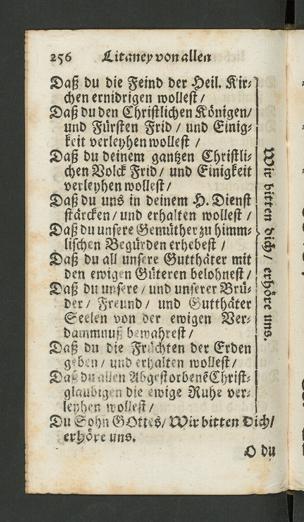 256 Litaney von allen
Daß du die Feind der Heil. Kir-
chen ernidrigen wollest /
Daß du den Christlichen Königen /
und Fürsten Frid / und Einig-
keit verleyhen wollest /
Daß du deinem gantzen Christli-
chen Volck Frid / und Einigkeit
verleyhen wollest /
Daß du uns in deinem H. Dienst
stärcken / und erhalten wollest /
Daß du unsere Gemüther zu himm-
lischen Begürden erhebest /
Daß du all unsere Gutthäter mit
den ewigen Güteren belohnest /
Daß du unsere / und unserer Brü-
der / Freund / und Gutthäter
Seelen von der ewigen Ver-
dammnuß bewahrest /
Daß du die Früchten der Erden
geben / und erhalten wollest /
Daß du allen Abgestorbenē Christ-
glaubigen die ewige Ruhe ver-
leyhen wollest /
Wir bitten dich / erhöre uns.
Du Sohn GOttes / Wir bitten Dich /
erhöre uns.
O du